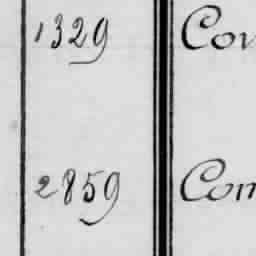 1329 Cov
2859 Com